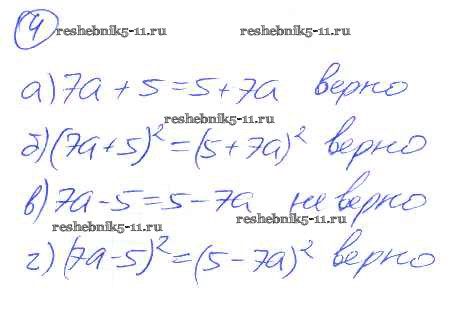 4
reshebnik5-11.ru reshebnik5-11.ru
а) 7а + 5 = 5 + 7а верно
reshebnik5-11.ru
б) (7а + 5)² = (5 + 7а)² верно
в) 7а - 5 = 5 - 7а не верно
reshebnik5-11.ru reshebnik5-11.ru
г) (7а - 5)² = (5 - 7а)² верно